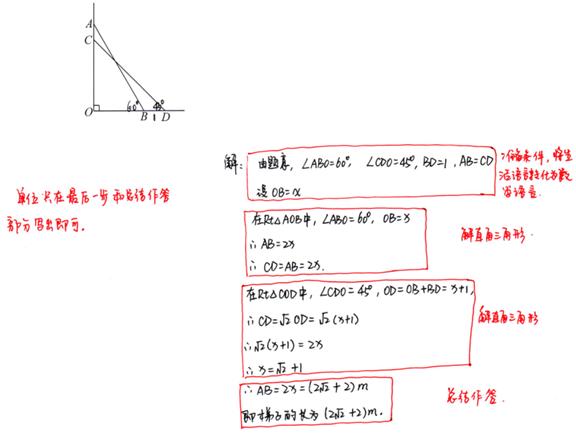 A
C
60° 45°
O B 1 D
解: 由题意, ∠ABO=60°, ∠CDO=45°, BD=1, AB=CD
设OB=x
准备条件, 将生
活语言转化为数
学语言.
单位长在最后一步和总结作答
部分写出即可.
在Rt△AOB中, ∠ABO=60°, OB=x
∴AB=2x
∴CD=AB=2x.
解直角三角形
在Rt△COD中, ∠CDO=45°, OD=OB+BD=x+1,
∴CD=√2 OD=√2(x+1)
∴√2(x+1)=2x
∴x=√2+1
解直角三角形
∴AB=2x=(2√2+2)m
即梯子的长为(2√2+2)m.
总结作答.